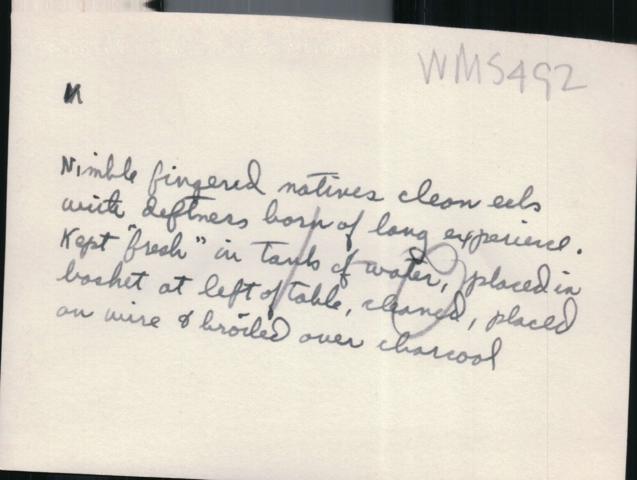 WMS492
M
Nimble fingered natives clean eels
with deftness born of long experience.
Kept "fresh" in tanks of water, placed in
basket at left of table, cleaned, placed
on wire & broiled over charcoal